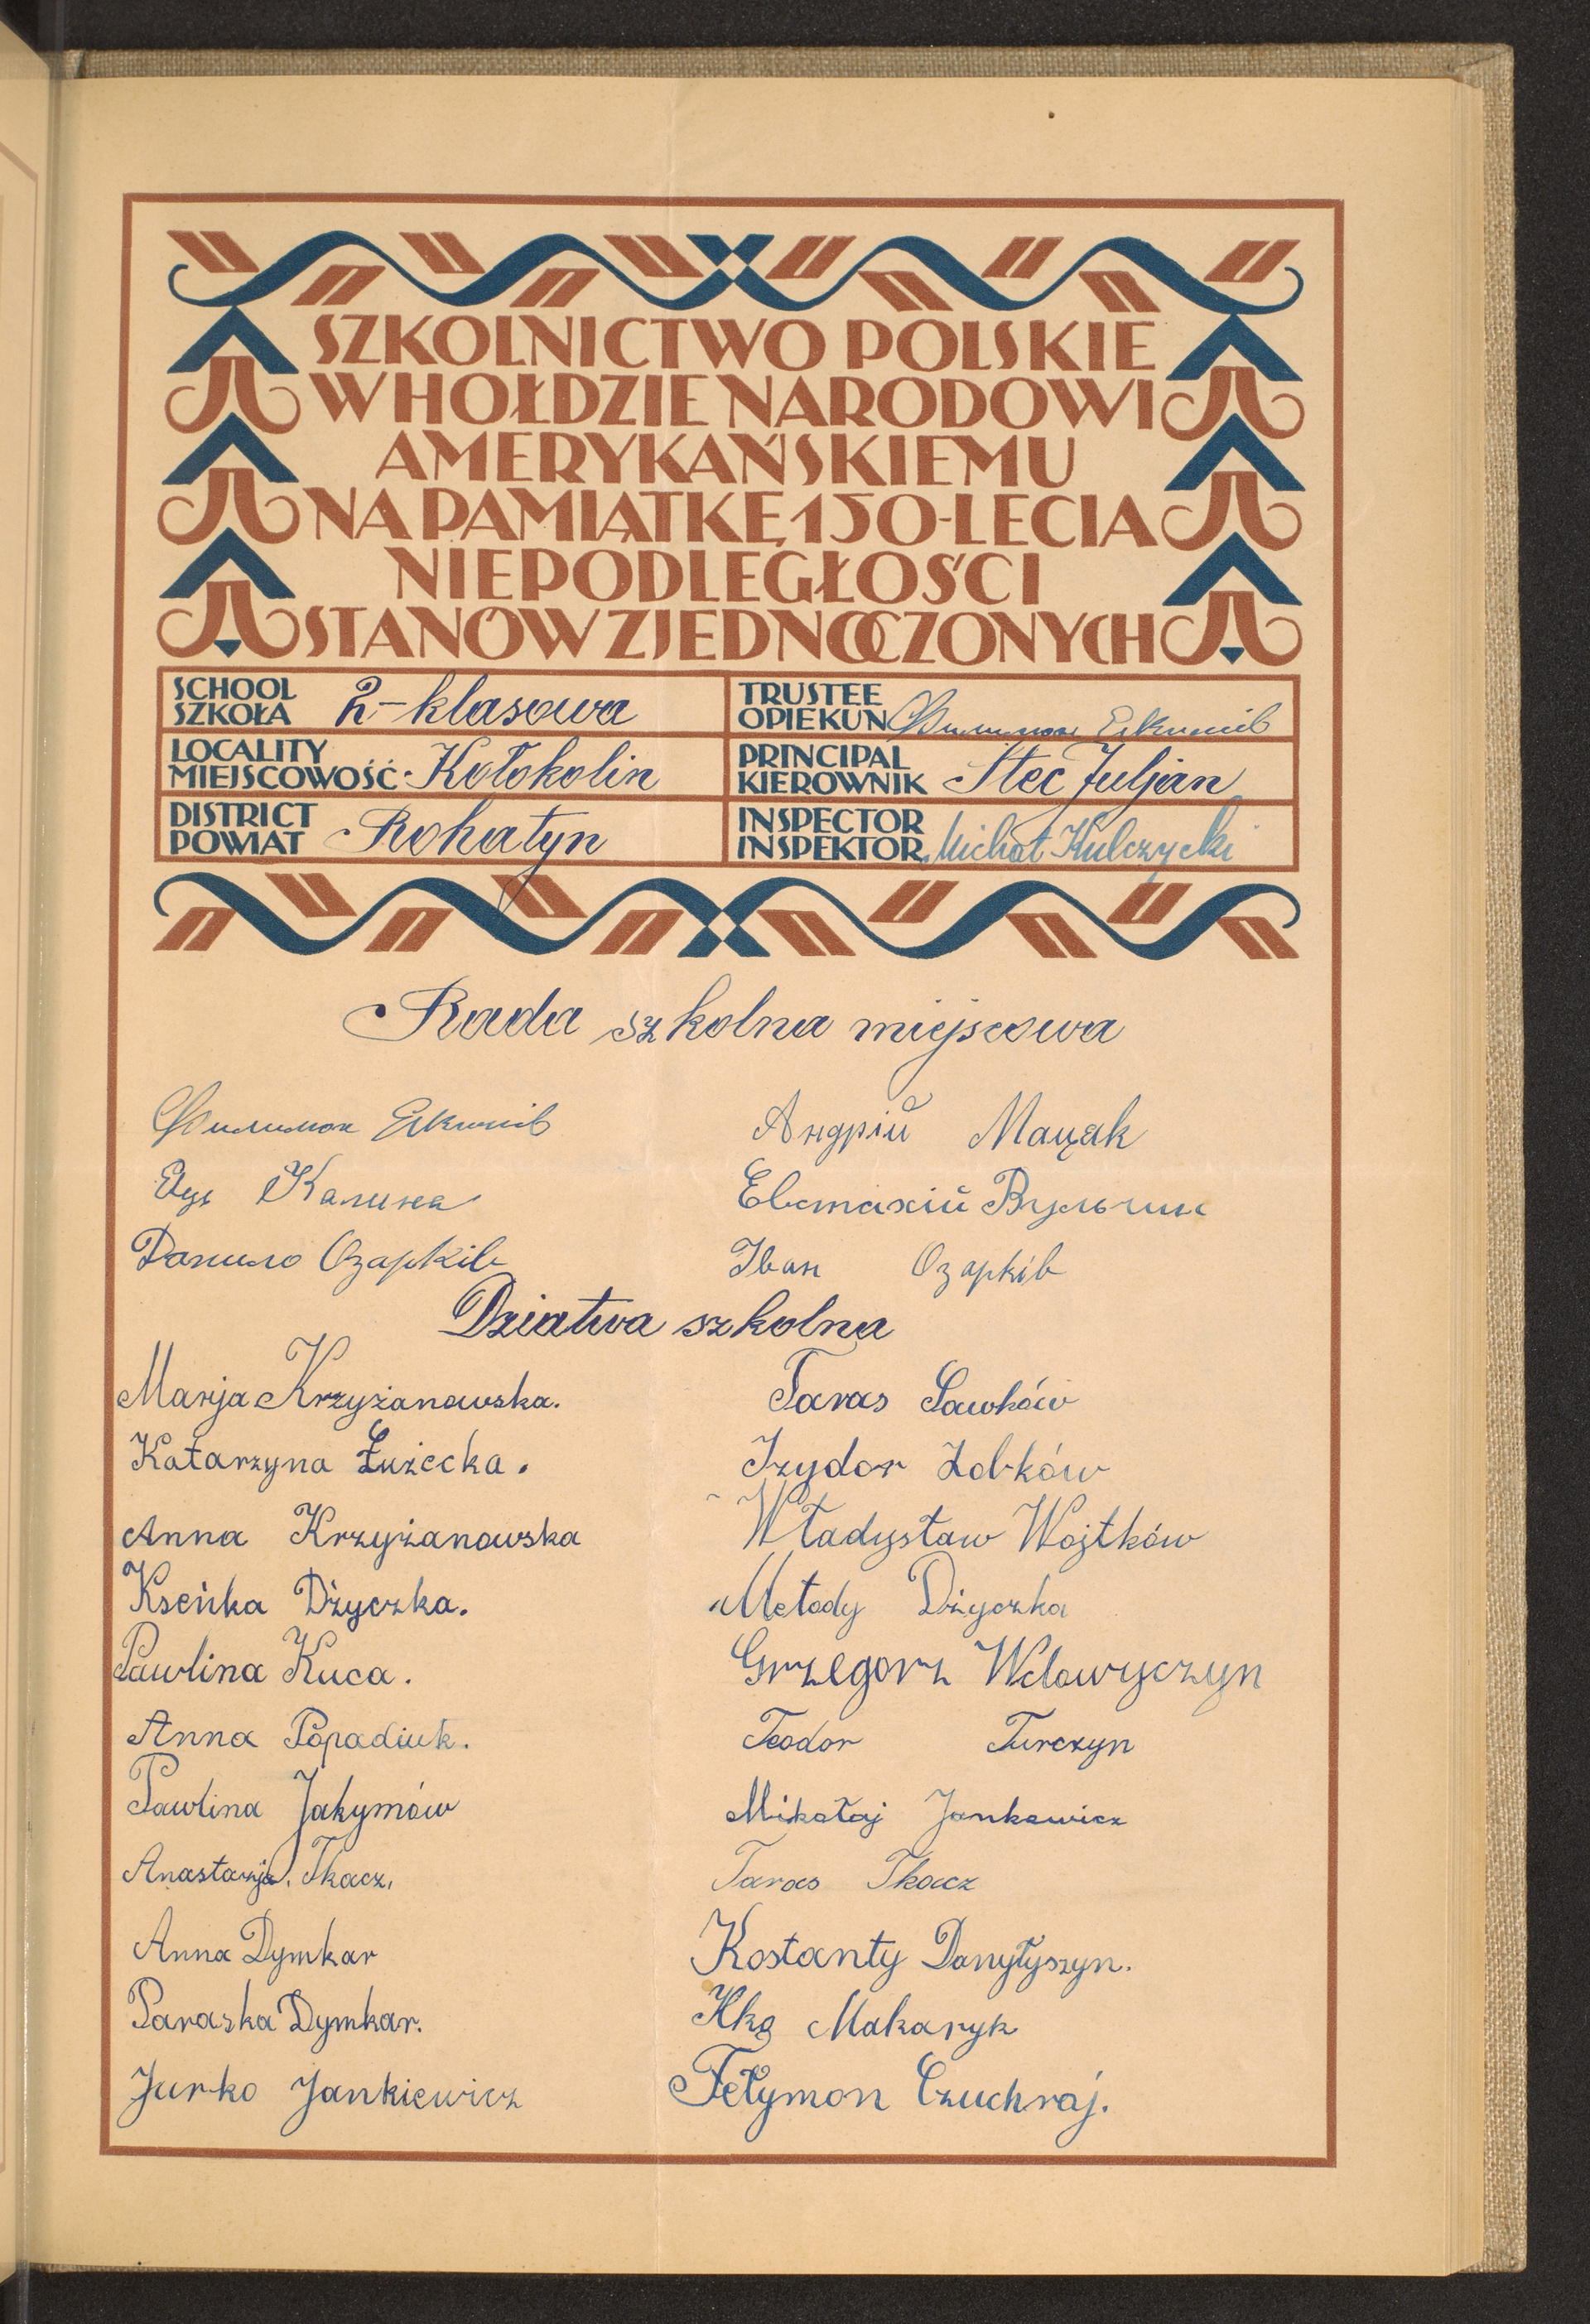 SZKOLNICTWO POLSKIE
W HOŁDZIE NARODOWI
AMERYKAŃSKIEMU
NA PAMIĄTKĘ 150-LECIA
NIEPODLEGŁOŚCI
STANÓW ZJEDNOCZONYCH
SCHOOL
SZKOŁA 2-klasowa
TRUSTEE
OPIEKUN
LOCALITY
MIEJSCOWOŚĆ Kołokolin
PRINCIPAL
KIEROWNIK Stec Juljan
DISTRICT
POWIAT Rohatyn
INSPECTOR
INSPEKTOR Michał Kulczycki
Rada szkolna miejscowa
Филимон
Андрій Мацяк
Калина
Евстахій
Данило Озарків
Іван Озарків
Dziatwa szkolna
Marja Krzyżanowska.
Taras Sawków
Katarzyna Łużecka.
Izydor Żobków
Anna Krzyżanowska
Władysław Wojtków
Kseńka Dżyczka.
Metody Dżyczka
Pawlina Kuca.
Grzegorz Wdowyczyn
Anna Popadiuk.
Teodor Turczyn
Pawlina Jakymów
Mikołaj Jankewicz
Anastazja Tkacz,
Taras Tkacz
Anna Dymkar
Kostanty Danyłyszyn.
Paraska Dymkar.
Makaryk
Jurko Jankiewicz
Fełymon Czuchraj.